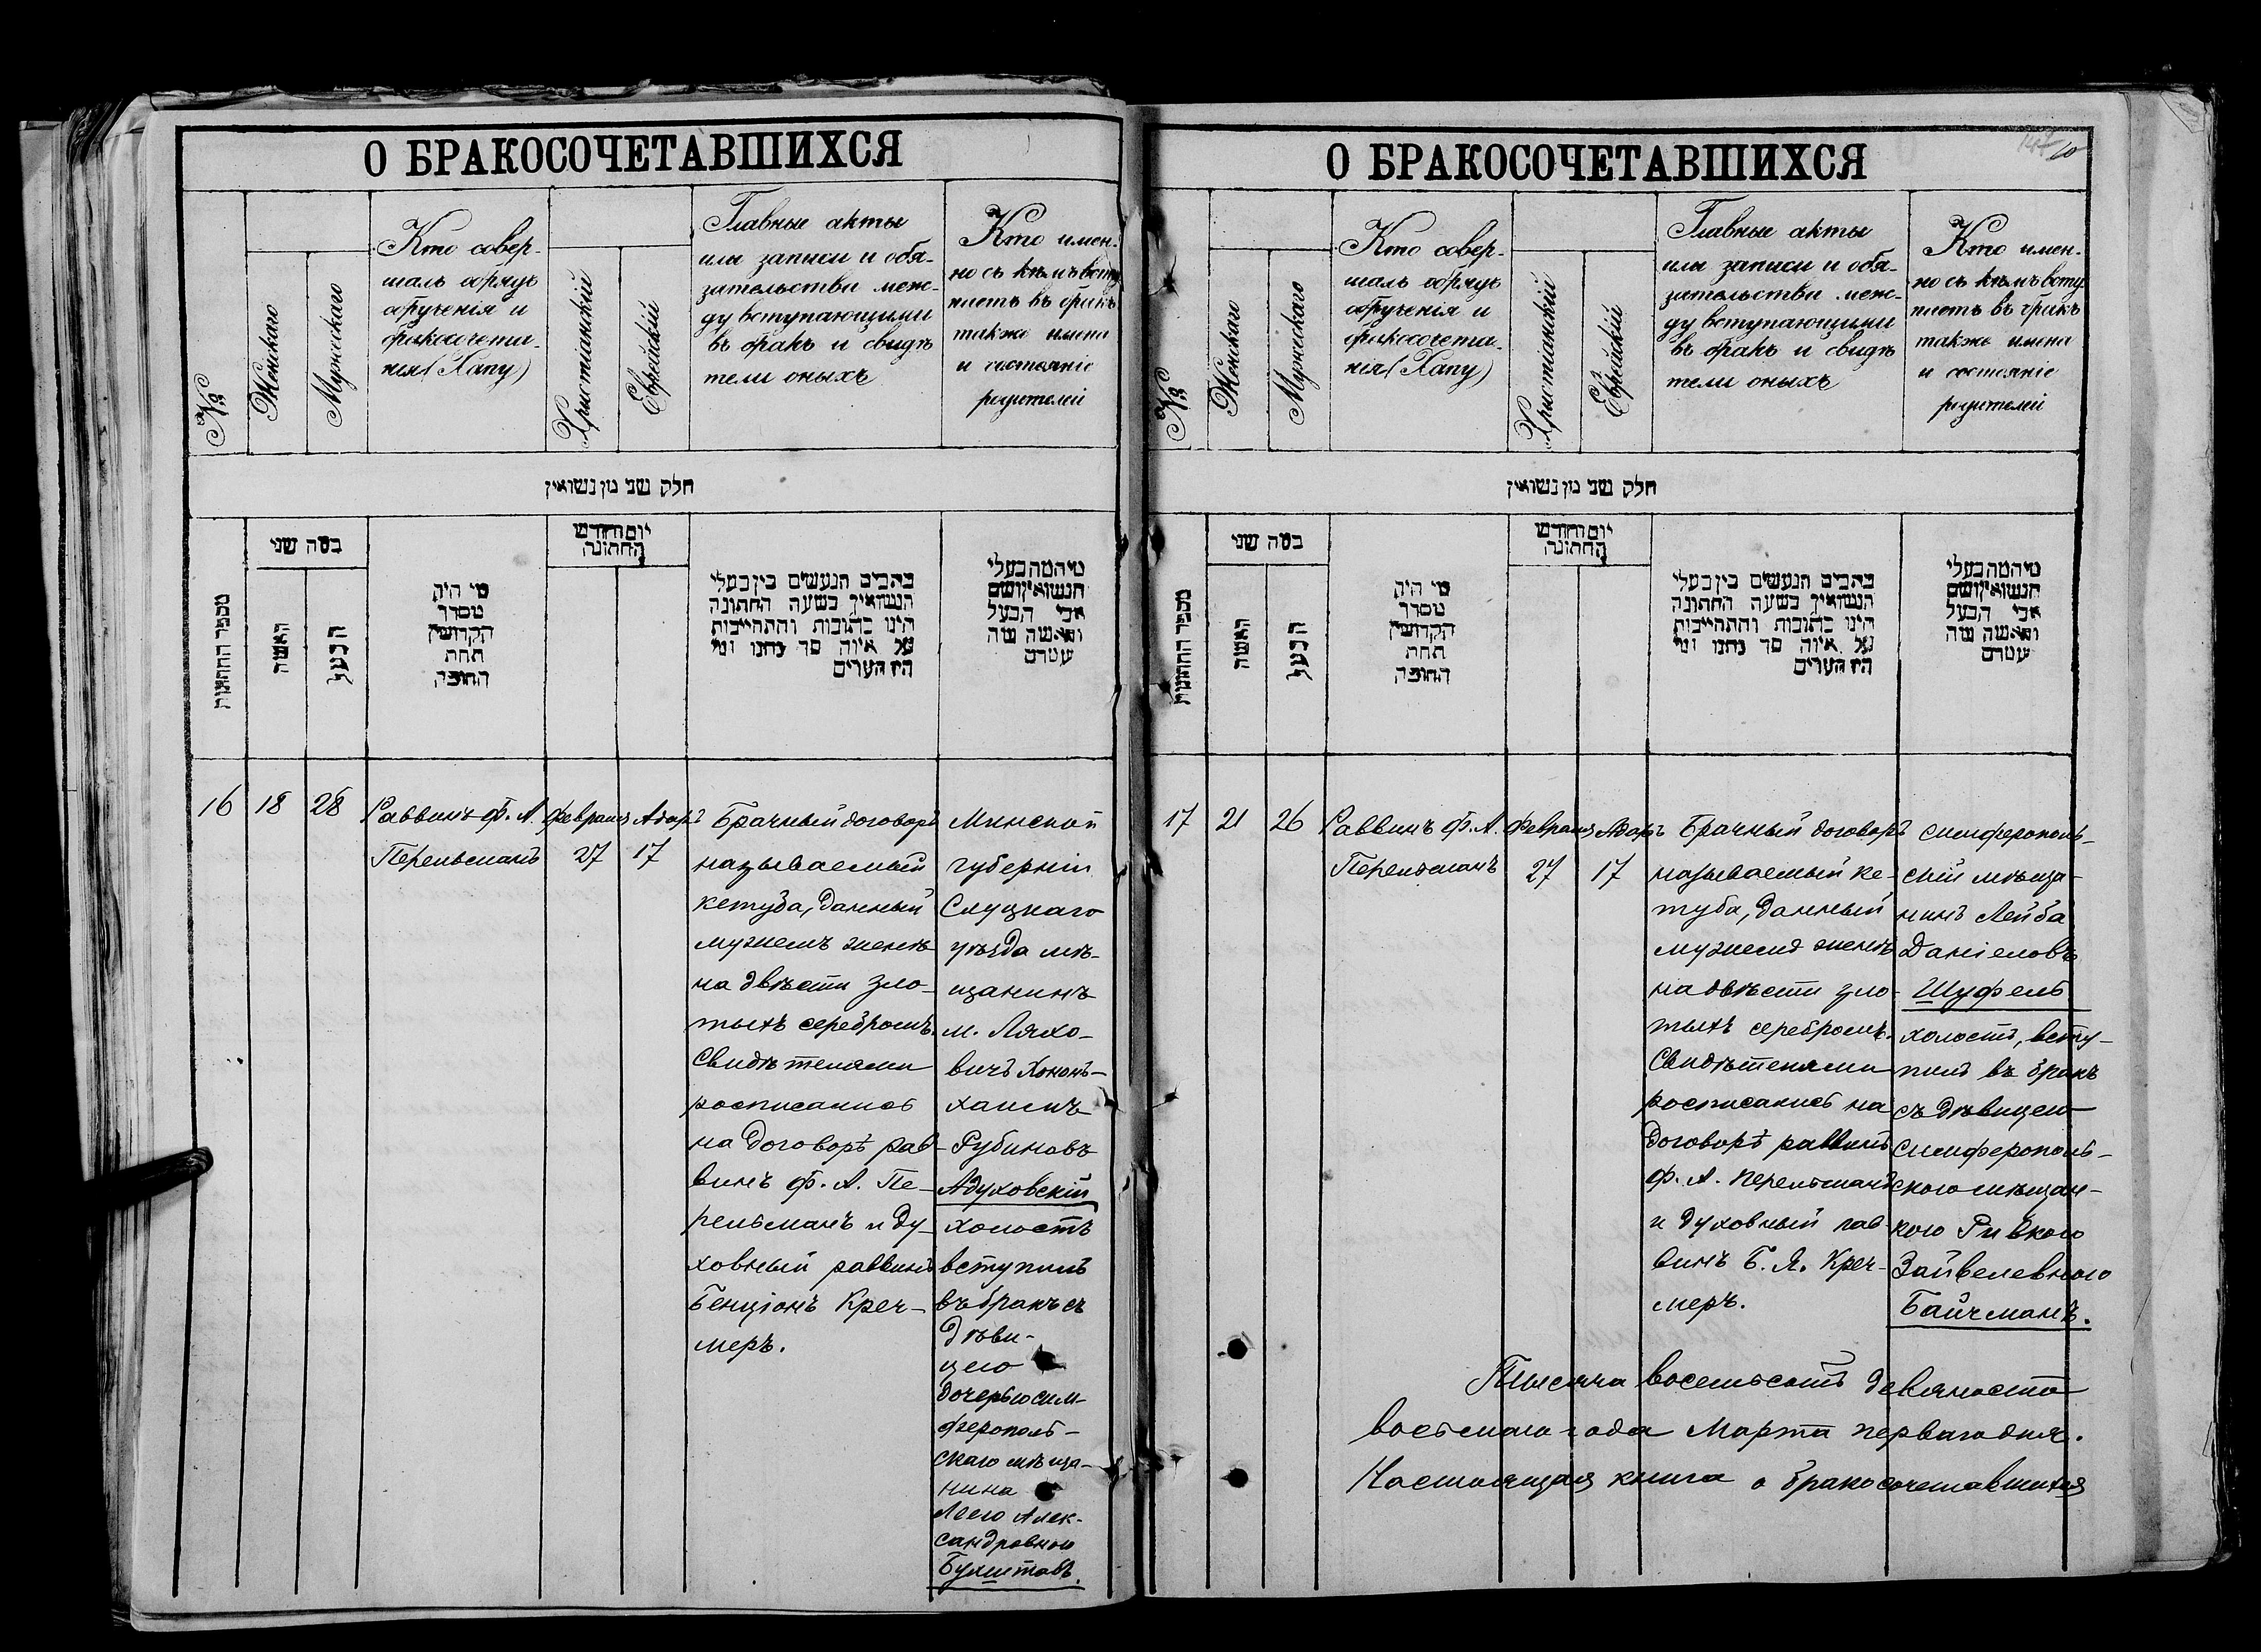 О БРАКОСОЧЕТАВШИХСЯ
№
Женскаго
Мужескаго
Кто совер-
шалъ обрядъ
обрученія и
бракосочета-
нія (Хапу)
Христіанскій
Еврейскій
Главные акты
или записи и обя-
зательства меж-
ду вступающими
въ бракъ и свидѣ
тели оныхъ
Кто имен-
но съ кѣмъ всту
паетъ въ бракъ
также имена
и состояніе
родителей
חלק שני מן נשואין
מספר החתונות
במה שני
האשה
הבעל
מי היה
מסדר
הקדושין
תחת
החופה
יום וחודש
החתונה
כתבים הנעשים בין בעלי
הנשואין בשעה החתונה
היינו כתובות והתחייבות
על איזה סך נתנו ומי
היו העדים
מי המה בעלי
הנשואין ושם
אבי הבעל
והאשה מה
מעמדם
16
18
28
Раввинъ Ф. А.
Перельманъ
Февраля
27
Адаръ
17
Брачный договоръ
называемый
кетуба, данный
мужемъ женѣ
на двѣсти зло-
тыхъ серебромъ.
Свидѣтелями
росписались
на договорѣ рав-
винъ Ф. А. Пе-
рельманъ и ду-
ховный раввинъ
Бенціонъ Креч-
меръ.
Минской
губерніи
Слуцкаго
уѣзда мѣ-
щанинъ
м. Ляхо-
вичъ Хононъ-
хаимъ
Рубиновъ
Адуховскій
холостъ
вступилъ
въ бракъ съ
дѣви-
цею
дочерью сим-
ферополь-
скаго мѣща-
нина
Леею Алек-
сандровною
Бухштабъ.
О БРАКОСОЧЕТАВШИХСЯ
10
№
Женскаго
Мужескаго
Кто совер-
шалъ обрядъ
обрученія и
бракосочета-
нія (Хапу)
Христіанскій
Еврейскій
Главные акты
или записи и обя-
зательства меж-
ду вступающими
въ бракъ и свидѣ
тели оныхъ
Кто имен-
но съ кѣмъ всту
паетъ въ бракъ
также имена
и состояніе
родителей
חלק שני מן נשואין
מספר החתונות
במה שני
האשה
הבעל
מי היה
מסדר
הקדושין
תחת
החופה
יום וחודש
החתונה
כתבים הנעשים בין בעלי
הנשואין בשעה החתונה
היינו כתובות והתחייבות
על איזה סך נתנו ומי
היו העדים
מי המה בעלי
הנשואין ושם
אבי הבעל
והאשה מה
מעמדם
17
21
26
Раввинъ Ф. А.
Перельманъ
Февраля
27
Адаръ
17
Брачный договоръ
называемый ке-
туба, данный
мужемъ женѣ
на двѣсти зло-
тыхъ серебромъ.
Свидѣтелями
росписались на
договорѣ раввинъ
Ф. А. Перельманъ
и духовный рав-
винъ Б. Я. Креч-
меръ.
симферополь-
скій мѣща-
нинъ Лейба
Даніеловъ
Шуфель
холостъ, всту-
пилъ въ бракъ
съ дѣвицею
симферополь-
скою мѣщан-
кою Ривкою
Зайвелевною
Байчманъ.
Тысяча восемьсотъ девяносто
восьмаго года Марта перваго дня.
Настоящая книга о бракосочетавшихся